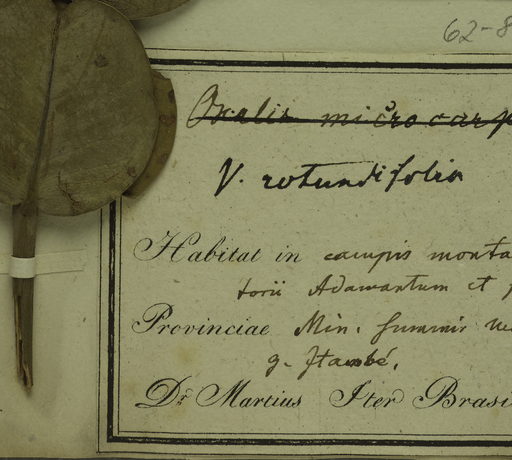 62-8
Oxalis microcarp
V. rotundifolia
Habitat in campis monta
torii Adamantum et p
Provinciae Min. summir
g. Itambé.
Dr Martius Iter Brasi